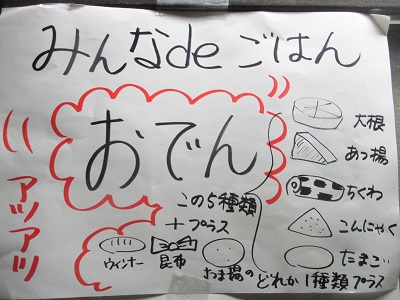 みんなdeごはん
おでん
アツアツ
大根
あつ揚
ちくわ
こんにゃく
たまご
この5種類
＋プラス
ウィンナー
昆布
さつま揚の
どれか1種類プラス